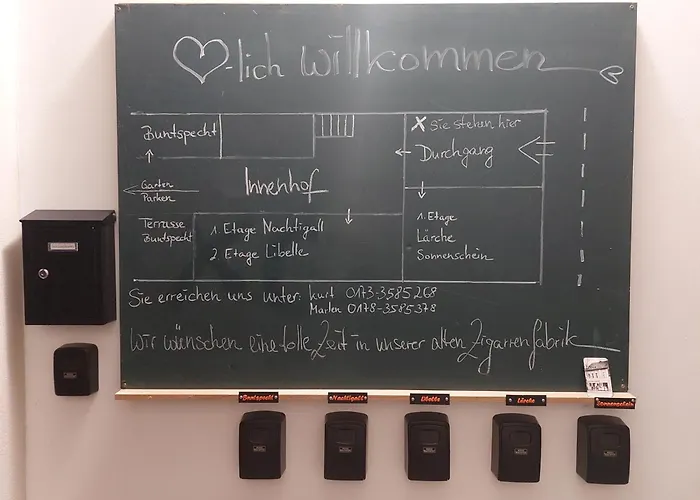 ♡-lich willkommen
Buntspecht
X Sie stehen hier
← Durchgang
Garten
Parken
Innenhof
Terrasse
Buntspecht
1. Etage Nachtigall
2. Etage Libelle
1. Etage
Lärche
Sonnenschein
Sie erreichen uns unter: Kurt 0173-3585268
Marlen 0178-3585378
Wir wünschen eine tolle Zeit in unserer alten Zigarrenfabrik
Buntspecht
Nachtigall
Libelle
Lärche
Sonnenschein